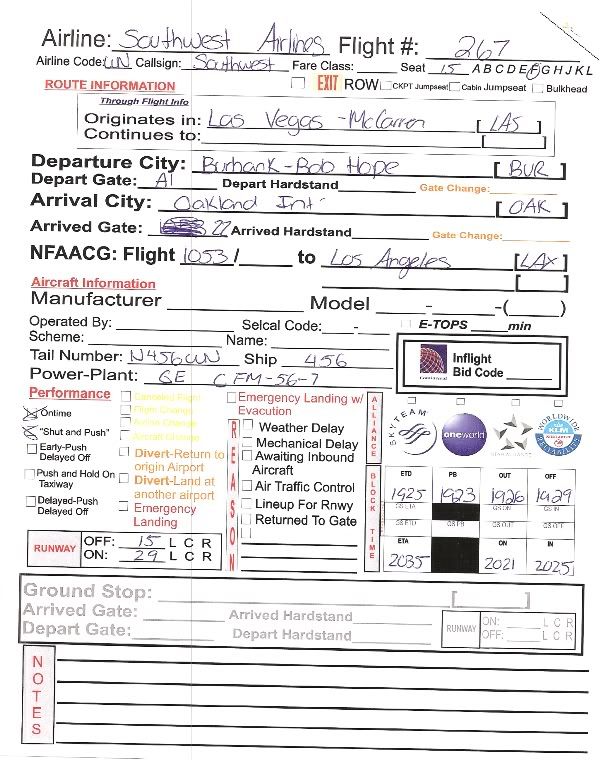 Airline: Southwest Airlines Flight #: 267
Airline Code: WN Callsign: Southwest Fare Class: Seat 15 A B C D E F G H J K L
ROUTE INFORMATION EXIT ROW CKPT Jumpseat Cabin Jumpseat Bulkhead
Through Flight Info
Originates in: Las Vegas - McCarren [ LAS ]
Continues to: [ ]
Departure City: Burbank - Bob Hope [ BUR ]
Depart Gate: A1 Depart Hardstand Gate Change:
Arrival City: Oakland Int' [ OAK ]
Arrived Gate: 22 Arrived Hardstand Gate Change:
NFAACG: Flight 1053 / to Los Angeles [ LAX ]
[ ]
Aircraft Information
Manufacturer Model - -( )
Operated By: Selcal Code: - E-TOPS min
Scheme: Name:
Tail Number: N456WN Ship 456
Inflight
Bid Code
Continental
Power-Plant: GE CFM-56-7
Performance
Ontime
"Shut and Push"
Early-Push Delayed Off
Push and Hold On Taxiway
Delayed-Push Delayed Off
Canceled Flight
Flight Change
Airline Change
Aircraft Change
Divert-Return to origin Airport
Divert-Land at another airport
Emergency Landing
RUNWAY OFF: 15 L C R
ON: 29 L C R
REASON
Emergency Landing w/ Evacution
Weather Delay
Mechanical Delay
Awaiting Inbound Aircraft
Air Traffic Control
Lineup For Rnwy
Returned To Gate
ALLIANCE
SKYTEAM
oneworld
STAR ALLIANCE
WORLDWIDE
KLM
RELIABILITY
BLOCK TIME
ETD PB OUT OFF
1925 1923 1926 1929
GS ETA GS ON GS IN
GS ETD GS PB GS OUT GS OFF
ETA ON IN
2035 2021 2025
Ground Stop: [ ]
Arrived Gate: Arrived Hardstand
Depart Gate: Depart Hardstand
RUNWAY ON: L C R
OFF: L C R
NOTES